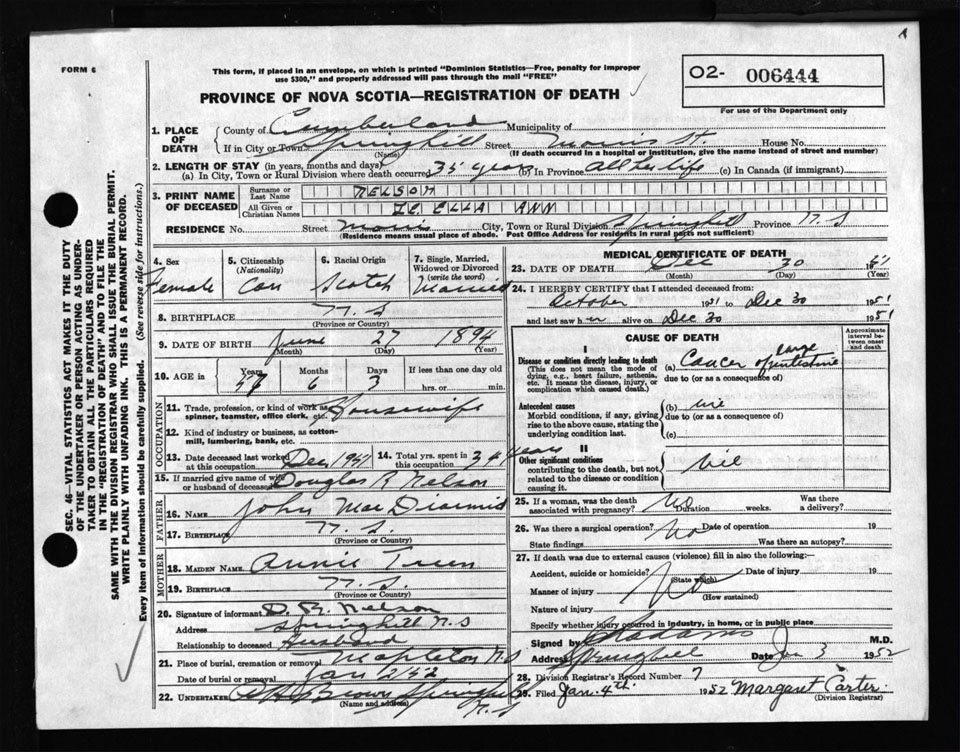 FORM 6
This form, if placed in an envelope, on which is printed "Dominion Statistics—Free, penalty for improper
use $300," and properly addressed will pass through the mail "FREE"
O2- 006444
PROVINCE OF NOVA SCOTIA—REGISTRATION OF DEATH
For use of the Department only
1. PLACE OF DEATH
County of Cumberland Municipality of
If in City or Town Springhill Street Main St. House No.
(Name) (If death occurred in a hospital or institution, give the name instead of street and number)
2. LENGTH OF STAY (in years, months and days)
(a) In City, Town or Rural Division where death occurred 35 years (b) In Province All her life (c) In Canada (if immigrant)
3. PRINT NAME OF DECEASED
Surname or Last Name NELSON
All Given or Christian Names ELLA ANN
RESIDENCE No. Street City, Town or Rural Division Springhill Province N.S
(Residence means usual place of abode. Post Office Address for residents in rural parts not sufficient)
4. Sex Female
5. Citizenship (Nationality) Can
6. Racial Origin Scotch
7. Single, Married, Widowed or Divorced (write the word) Married
8. BIRTHPLACE N.S.
(Province or Country)
9. DATE OF BIRTH June 27 1894
(Month) (Day) (Year)
10. AGE in Years 57 Months 6 Days 3 If less than one day old
hrs. or min.
OCCUPATION
11. Trade, profession, or kind of work as spinner, teamster, office clerk, etc. Housewife
12. Kind of industry or business, as cotton-mill, lumbering, bank, etc.
13. Date deceased last worked at this occupation Dec 1951 14. Total yrs. spent in this occupation 34 years
15. If married give name of wife or husband of deceased Douglas R Nelson
FATHER
16. NAME John MacDiarmid
17. BIRTHPLACE N.S.
(Province or Country)
MOTHER
18. MAIDEN NAME Annie
19. BIRTHPLACE N.S.
(Province or Country)
20. Signature of informant D. R. Nelson
Address Springhill N.S
Relationship to deceased Husband
21. Place of burial, cremation or removal Mapleton N.S
Date of burial or removal Jan 2 52
22. UNDERTAKER Brown Springhill N.S
(Name and address)
MEDICAL CERTIFICATE OF DEATH
23. DATE OF DEATH Dec 30 1951
(Month) (Day) (Year)
24. I HEREBY CERTIFY that I attended deceased from:
October 1951 to Dec 30 1951
and last saw her alive on Dec 30 1951
CAUSE OF DEATH
Approximate interval between onset and death
I
Disease or condition directly leading to death
(This does not mean the mode of dying, e.g., heart failure, asthenia, etc. It means the disease, injury, or complication which caused death.)
(a) Cancer of large intestine
due to (or as a consequence of)
Antecedent causes
Morbid conditions, if any, giving rise to the above cause, stating the underlying condition last.
(b)
due to (or as a consequence of)
(c)
II
Other significant conditions contributing to the death, but not related to the disease or condition causing it
Nil
25. If a woman, was the death associated with pregnancy? No Duration weeks. Was there a delivery?
26. Was there a surgical operation? No Date of operation 19
State findings Was there an autopsy?
27. If death was due to external causes (violence) fill in also the following:—
Accident, suicide or homicide? Date of injury 19
(State which)
Manner of injury No
(How sustained)
Nature of injury
Specify whether injury occurred in industry, in home, or in public place
Signed by Adams M.D.
Address Springhill Date Jan 3 1952
28. Division Registrar's Record Number 7
29. Filed Jan. 4th. 1952 Margaret Carter
(Division Registrar)
SEC. 46—VITAL STATISTICS ACT MAKES IT THE DUTY
OF THE UNDERTAKER OR PERSON ACTING AS UNDER-
TAKER TO OBTAIN ALL THE PARTICULARS REQUIRED
IN THE "REGISTRATION OF DEATH" AND TO FILE THE
SAME WITH THE DIVISION REGISTRAR WHO SHALL ISSUE THE BURIAL PERMIT.
WRITE PLAINLY WITH UNFADING INK. THIS IS A PERMANENT RECORD.
Every item of information should be carefully supplied. (See reverse side for instructions.)